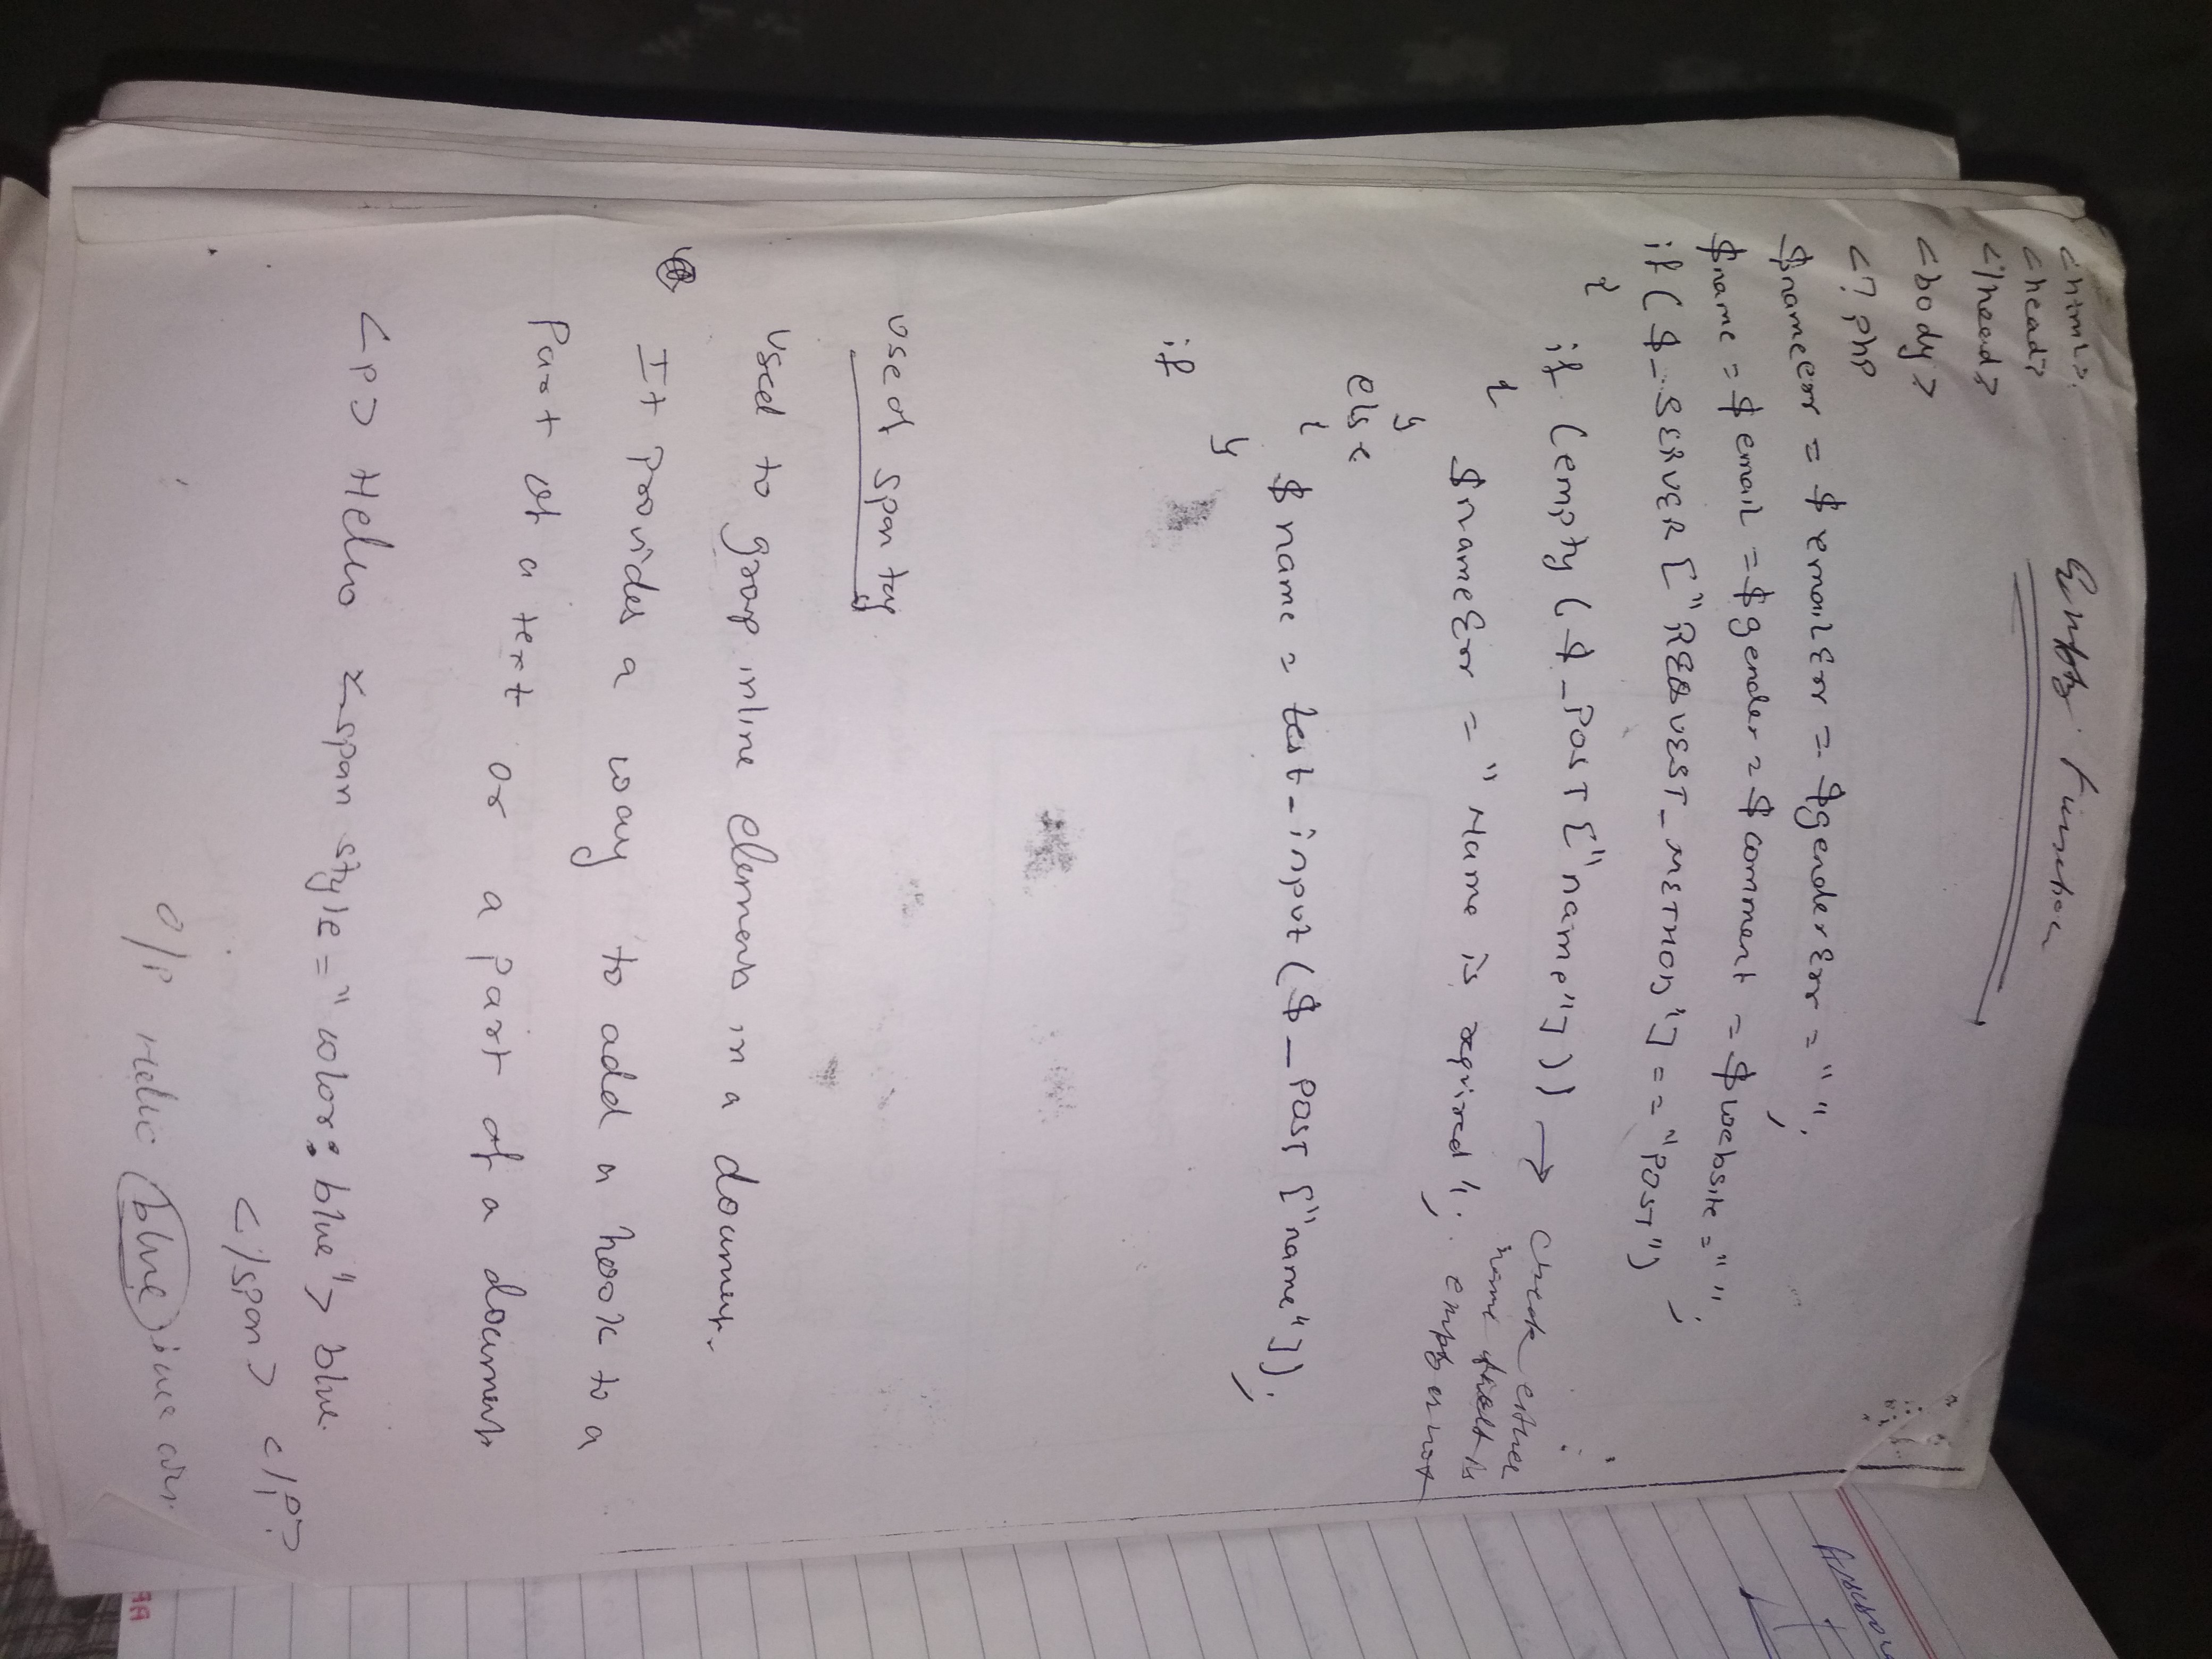 Empty Function
<html>
<head>
</head>
<body>
<? php
$nameerr = $emailErr = $genderErr = " ";
$name = $email = $gender = $comment = $website = " ";
if ($_SERVER ["REQUEST_METHOD"] == "POST")
{
if (empty ($_POST ["name"])) → check either
name is
{
$nameErr = "Name is required"; empty or not
}
else
{
$name = test_input ($_POST ["name"]);
}
if
use of span tag
Used to group inline elements in a document.
It provides a way to add a hook to a
part of a text or a part of a document
<p> Hello <span style="color: blue"> blue
</span> </p>
O/P Hello blue